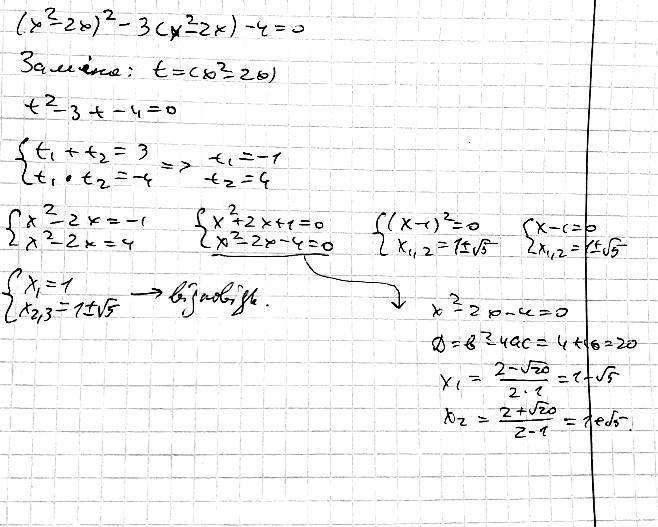 (x²-2x)²-3(x²-2x)-4=0
Заміна: t=(x²-2x)
t²-3t-4=0
{t₁+t₂=3 => t₁=-1
{t₁·t₂=-4 t₂=4
{x²-2x=-1 {x²+2x+1=0 {(x-1)²=0 {x-1=0
{x²-2x=4 {x²-2x-4=0 {x₁,₂=1±√5 {x₁,₂=1±√5
{x₁=1 → відповідь.
{x₂,₃=1±√5
x²-2x-4=0
D=b²-4ac=4+16=20
x₁=(2-√20)/(2·1)=1-√5
x₂=(2+√20)/(2-1)=1+√5.